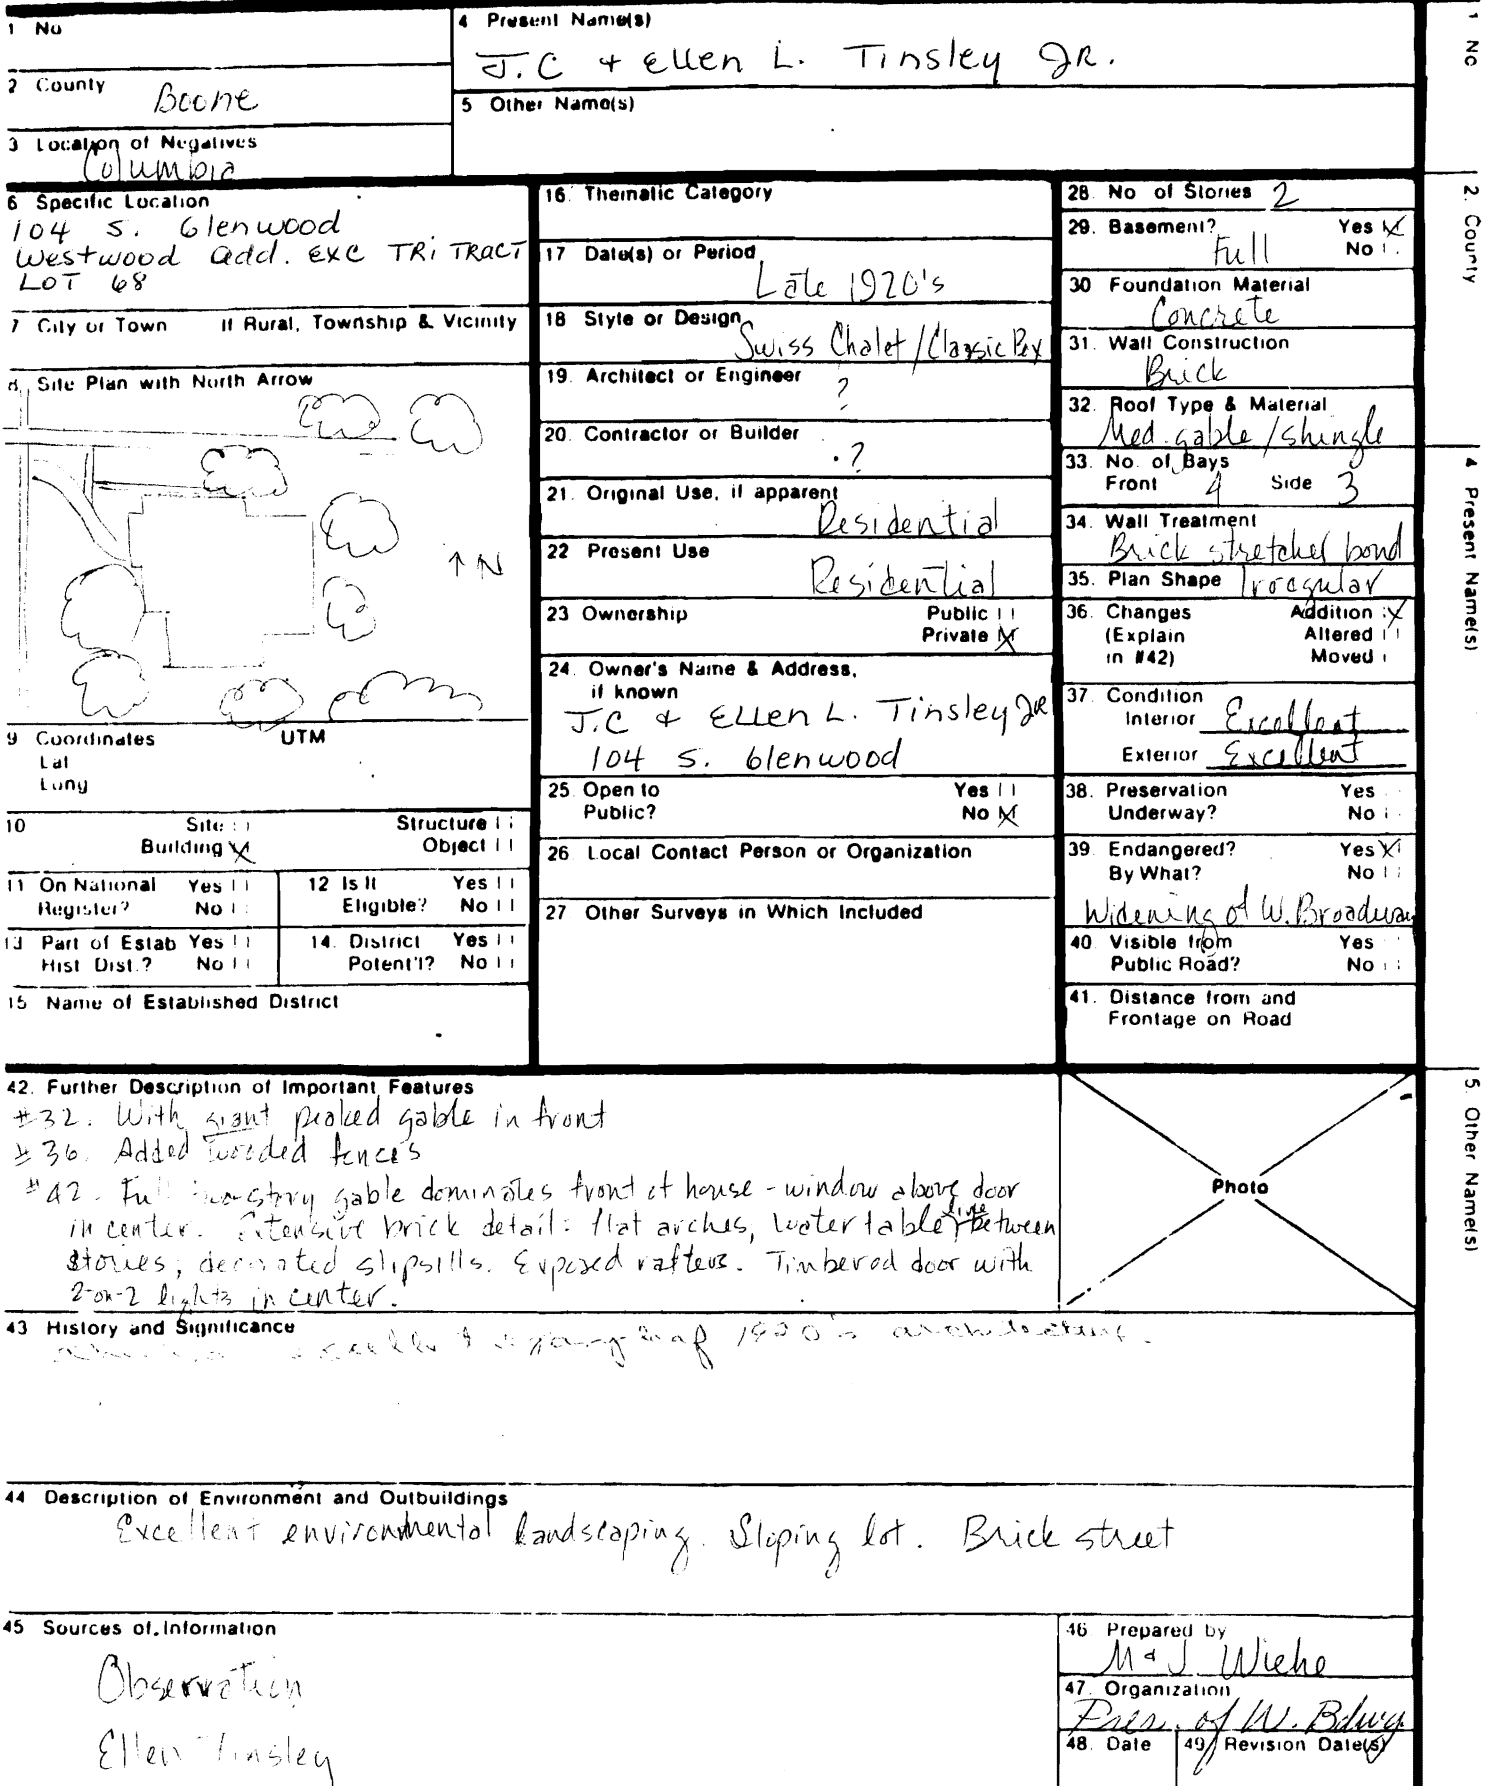 1 No
4 Present Name(s)
J.C & Ellen L. Tinsley JR.
2 County
Boone
5 Other Name(s)
3 Location of Negatives
Columbia
6 Specific Location
104 S. Glenwood
Westwood Add. EXC TRI TRACT
LOT 68
7 City or Town If Rural, Township & Vicinity
8. Site Plan with North Arrow
↑ N
9 Coordinates UTM
Lat
Long
10 Site
Structure
Building X
Object
11 On National Register? Yes No
12 Is It Eligible? Yes No
13 Part of Estab Hist Dist.? Yes No
14. District Potent'l? Yes No
15 Name of Established District
16. Thematic Category
17 Date(s) or Period
Late 1920's
18 Style or Design
Swiss Chalet/Classic Box
19. Architect or Engineer
?
20. Contractor or Builder
?
21. Original Use, if apparent
Residential
22 Present Use
Residential
23 Ownership Public
Private X
24. Owner's Name & Address,
if known
J.C & Ellen L. Tinsley JR
104 S. Glenwood
25. Open to Yes
Public? No X
26. Local Contact Person or Organization
27 Other Surveys in Which Included
28. No of Stories 2
29. Basement? Yes X
Full No
30 Foundation Material
Concrete
31. Wall Construction
Brick
32. Roof Type & Material
Med. gable/shingle
33. No. of Bays
Front 4 Side 3
34. Wall Treatment
Brick stretchel bond
35. Plan Shape Irregular
36. Changes Addition X
(Explain Altered
in #42) Moved
37. Condition
Interior Excellent
Exterior Excellent
38. Preservation Yes
Underway? No
39. Endangered? Yes X
By What? No
Widening of W. Broadway
40. Visible from Yes
Public Road? No
41. Distance from and
Frontage on Road
42. Further Description of Important Features
#32. With giant peaked gable in front
#36. Added wooded fences
#42. Full two-story gable dominates front of house - window above door
in center. Extensive brick detail: flat arches, water table line between
stories, decorated slipsills. Exposed rafters. Timbered door with
2-on-2 lights in center.
Photo
43 History and Significance
1920's architecture.
44 Description of Environment and Outbuildings
Excellent environmental landscaping. Sloping lot. Brick street
45 Sources of Information
Observation
Ellen Tinsley
46 Prepared by
M & J Wiehe
47. Organization
Pres. of W. Bdwy.
48. Date
49. Revision Date(s)
1 No
2. County
4 Present Name(s)
5. Other Name(s)